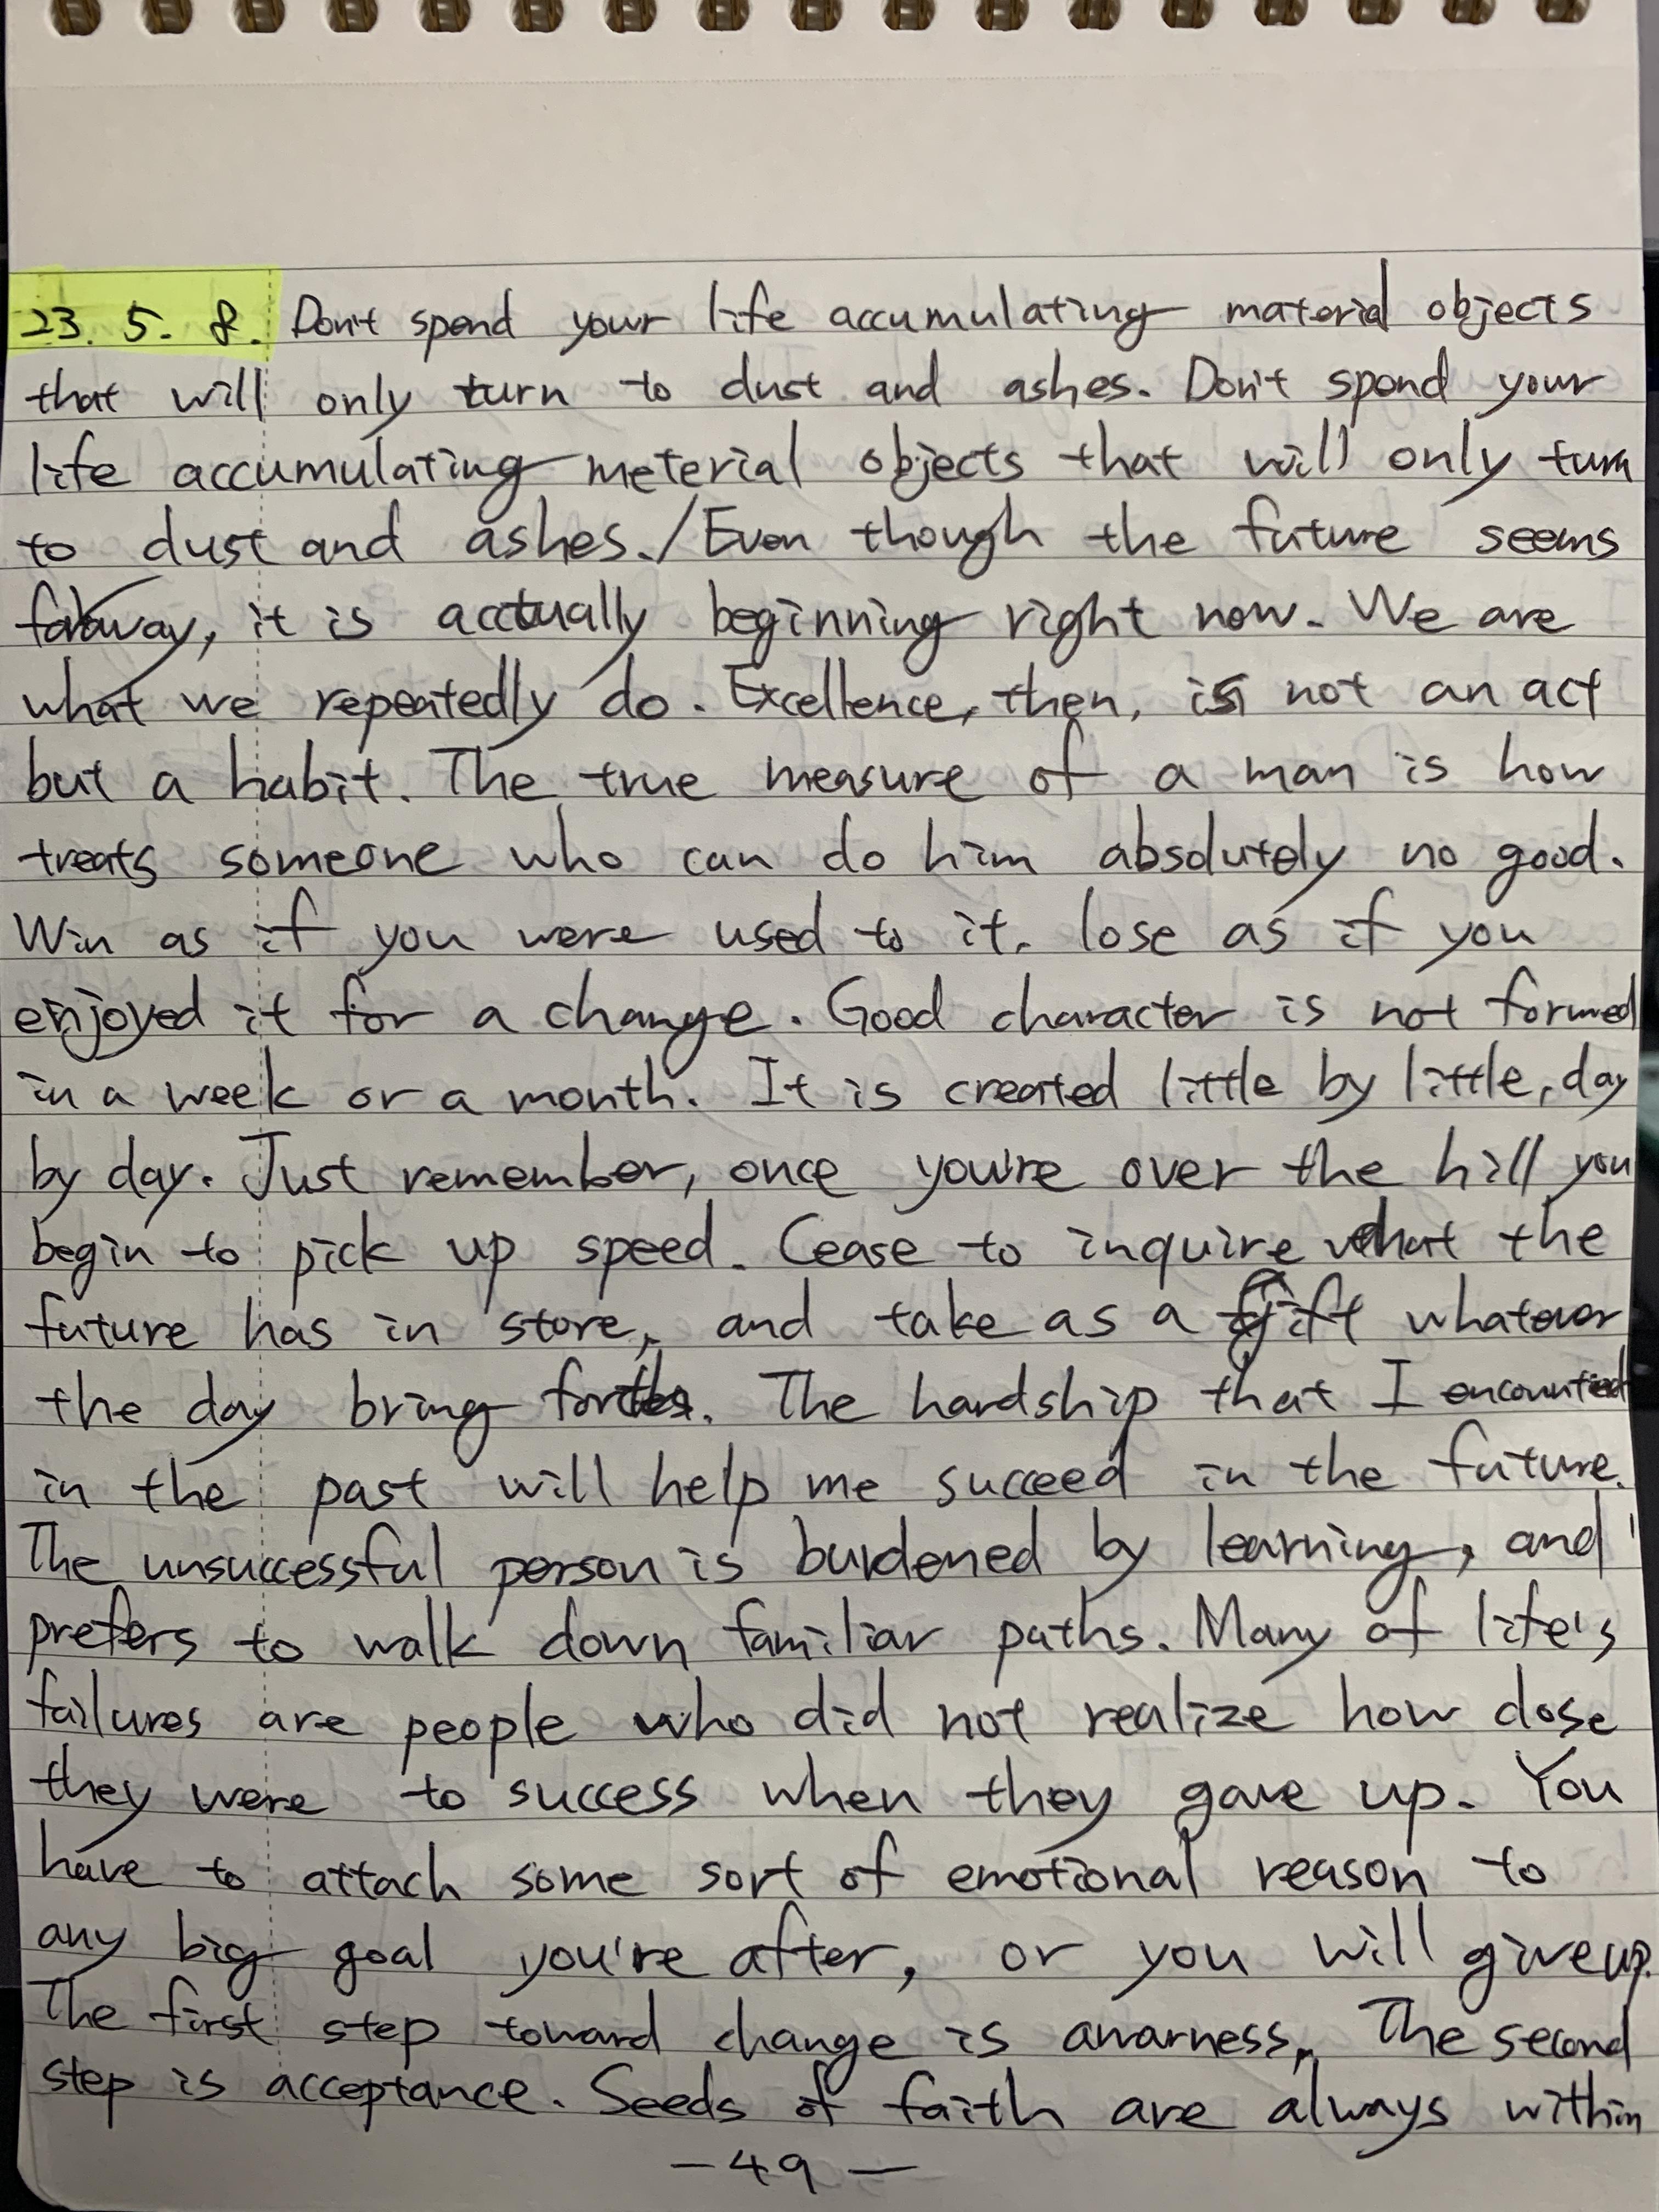 23. 5. 8. Don't spend your life accumulating material objects
that will only turn to dust and ashes. Don't spend your
life accumulating meterial objects that will only turn
to dust and ashes./Even though the future seems
faraway, it is acctually beginning right now. We are
what we repeatedly do. Excellence, then, is not an act
but a habit. The true measure of a man is how
treats someone who can do him absolutely no good.
Win as if you were used to it. lose as if you
enjoyed it for a change. Good character is not formed
in a week or a month. It is created little by little, day
by day. Just remember, once you're over the hill you
begin to pick up speed. Cease to inquire what the
future has in store, and take as a gift whatever
the day bring forth. The hardship that I encountied
in the past will help me succeed in the future.
The unsuccessful person is burdened by learning, and
prefers to walk down familiar paths. Many of life's
failures are people who did not realize how close
they were to success when they gave up. You
have to attach some sort of emotional reason to
any big goal you're after, or you will give up.
The first step toward change is awarness. The second
step is acceptance. Seeds of faith are always within
- 49 -